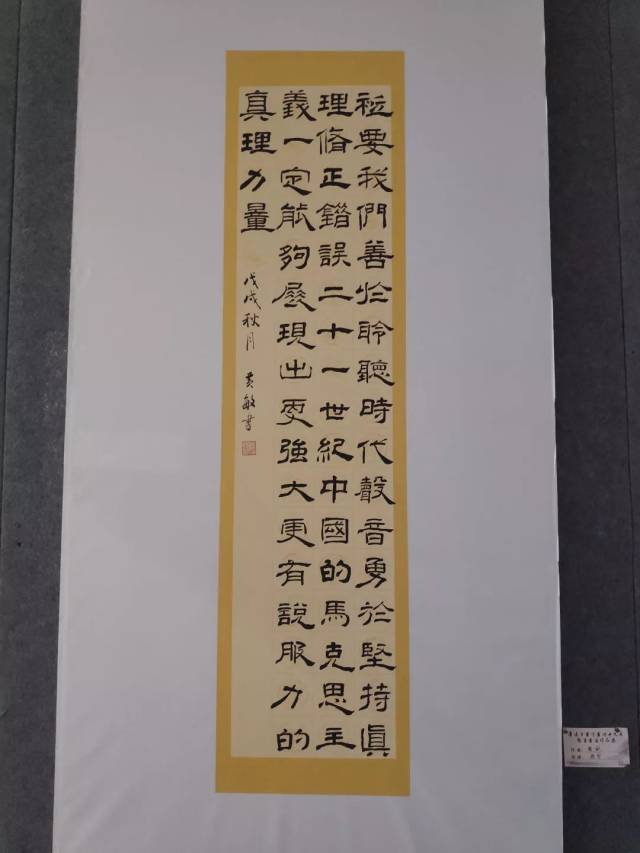 祗要我們善於聆聽時代聲音勇於堅持眞
理脩正錯誤二十一世紀中國的馬克思主
義一定能夠展現出更強大更有說服力的
真理力量
戊戌秋月 黄敏書